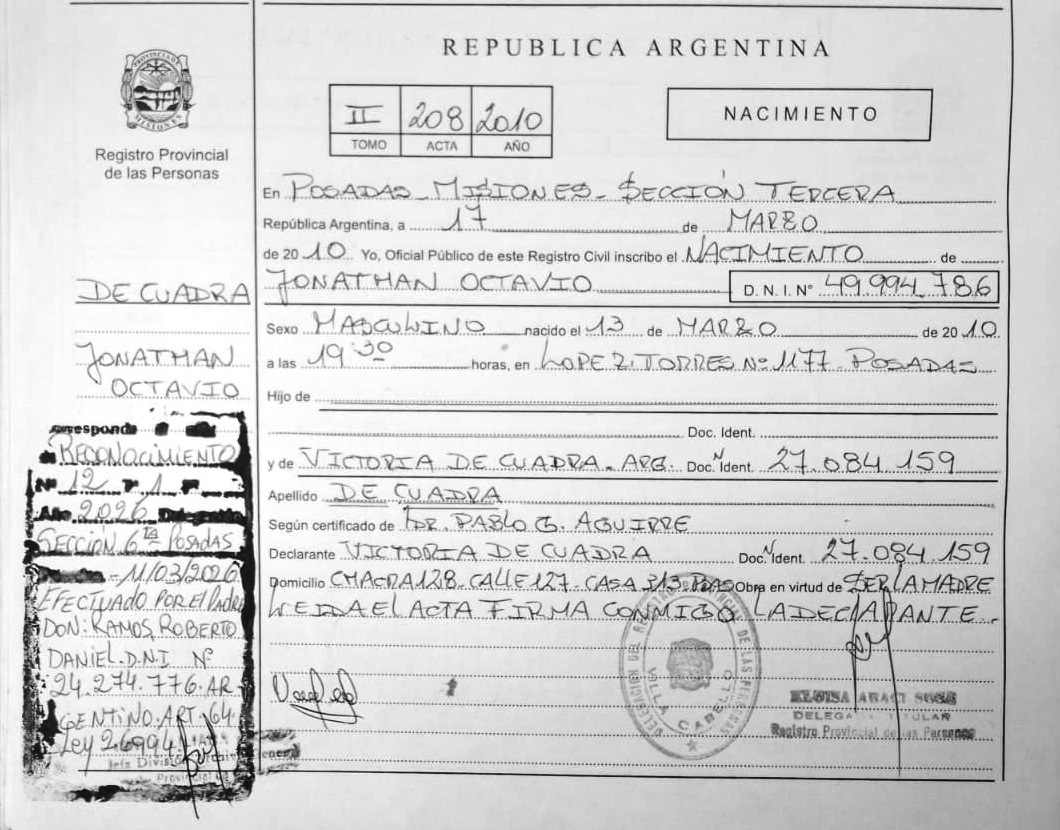 REPUBLICA ARGENTINA
PROVINCIA DE MISIONES
Registro Provincial
de las Personas
II 208 2010
TOMO ACTA AÑO
NACIMIENTO
En POSADAS - MISIONES - SECCIÓN TERCERA
República Argentina, a 17 de MARZO
de 2010 Yo, Oficial Público de este Registro Civil inscribo el NACIMIENTO de
JONATHAN OCTAVIO D. N. I. N° 49.994.786
Sexo MASCULINO nacido el 13 de MARZO de 2010
a las 19:30 horas, en LOPEZ TORRES Nº 1177 - POSADAS
Hijo de
Doc. Ident.
y de VICTORIA DE CUADRA - ARG. Doc. N Ident. 27.084.159
Apellido DE CUADRA
Según certificado de DR. PABLO G. AGUIRRE
Declarante VICTORIA DE CUADRA Doc. N Ident. 27.084.159
Domicilio CHACRA 128 - CALLE 127 - CASA 313 - PDAS Obra en virtud de SER LA MADRE
LEIDA EL ACTA FIRMA CONMIGO LA DECLARANTE.
DELEGACION DEL REGISTRO PROVINCIAL DE LAS PERSONAS
VILLA CABELLO
DELEGADA TITULAR
Registro Provincial de las Personas
DE CUADRA
JONATHAN
OCTAVIO
Corresponde a
RECONOCIMIENTO
Nº 12 Tº 1 Fº
Año 2026 Delegación
SECCIÓN 6TA POSADAS
- 11/03/2026
EFECTUADO POR EL PADRE
DON: RAMOS, ROBERTO
DANIEL - D.N.I Nº
24.274.776 - AR-
GENTINO - ART. 64
Ley 26994
Jefa División Archivo General
Provincial de